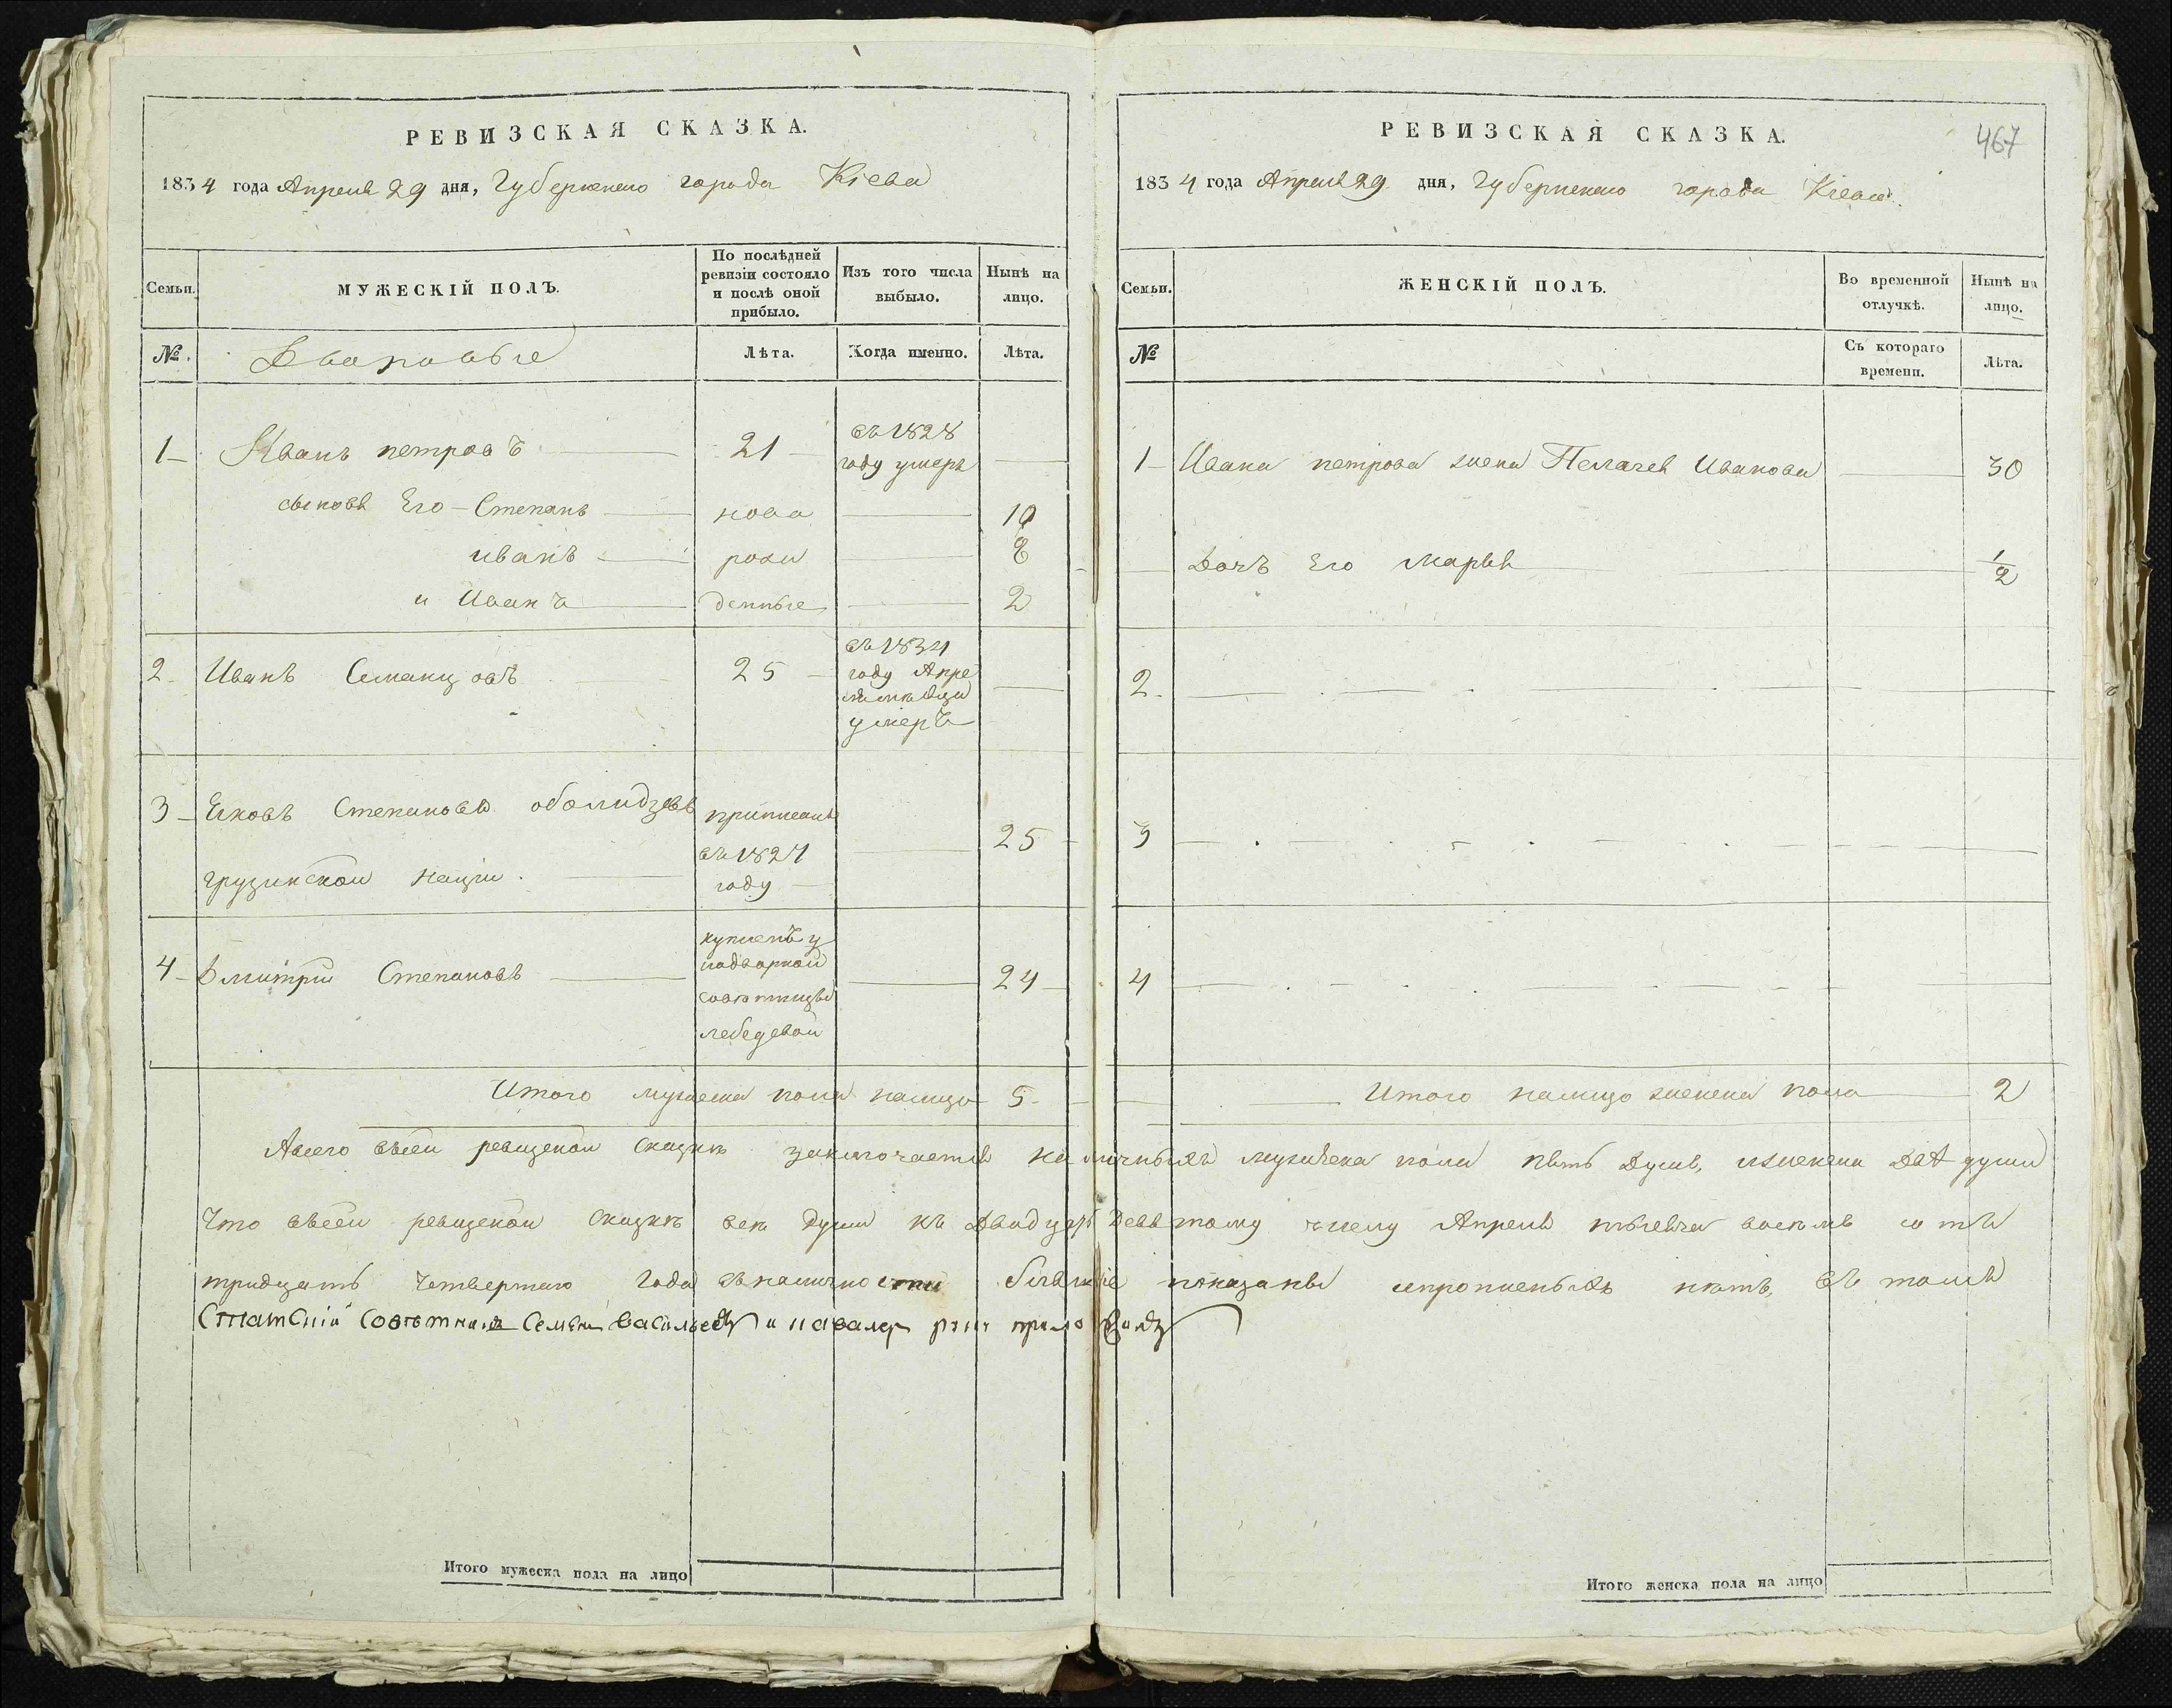 РЕВИЗСКАЯ СКАЗКА.
1834 года Апреля 29 дня, Губернскаго города Кіева
Семьи.
МУЖЕСКІЙ ПОЛЪ.
По послѣдней ревизіи состояло и послѣ оной прибыло.
Изъ того числа выбыло.
Нынѣ на лицо.
№.
Дваровые
Лѣта.
Когда именно.
Лѣта.
1 Иванъ петровъ 21 въ 1828 году умеръ
сыновя Его Степанъ нова 10
иванъ рози 8
и Иванъ денные 2
2 Иванъ Семанцовъ 25 въ 1834 году Апреля умеръ
3 Яковъ Степановъ оболидзевъ приписанъ 25
грузинской нации. въ 1827 году
4 Дмитрий Степановъ купленъ у надворной советницы лебедевой 24
Итого мужеска пола налицо 5
РЕВИЗСКАЯ СКАЗКА.
467
1834 года Апреля 29 дня, Губернскаго города Кіева
Семьи.
ЖЕНСКІЙ ПОЛЪ.
Во временной отлучкѣ.
Нынѣ на лицо.
№
Съ котораго времени.
Лѣта.
1 Ивана петрова жена Пелагея Иванова 30
Дочь Его марья 1/2
2
3
4
Итого налицо женска пола 2
Авсего всей ревизской сказкѣ заключается наличныхъ мужеска пола пять душъ, иженска две души
Что всей ревизской сказкѣ все души къ Двадцать Девятому числу Апреля тысяча восемь сотъ
тридцать четвертаго года вналичности бывшіе показаны инрописныхъ нѣтъ, въ томъ
Статскій Совѣтникъ Семенъ васильевъ и кавалер руку приложилъ
Итого мужеска пола на лицо
Итого женска пола на лицо